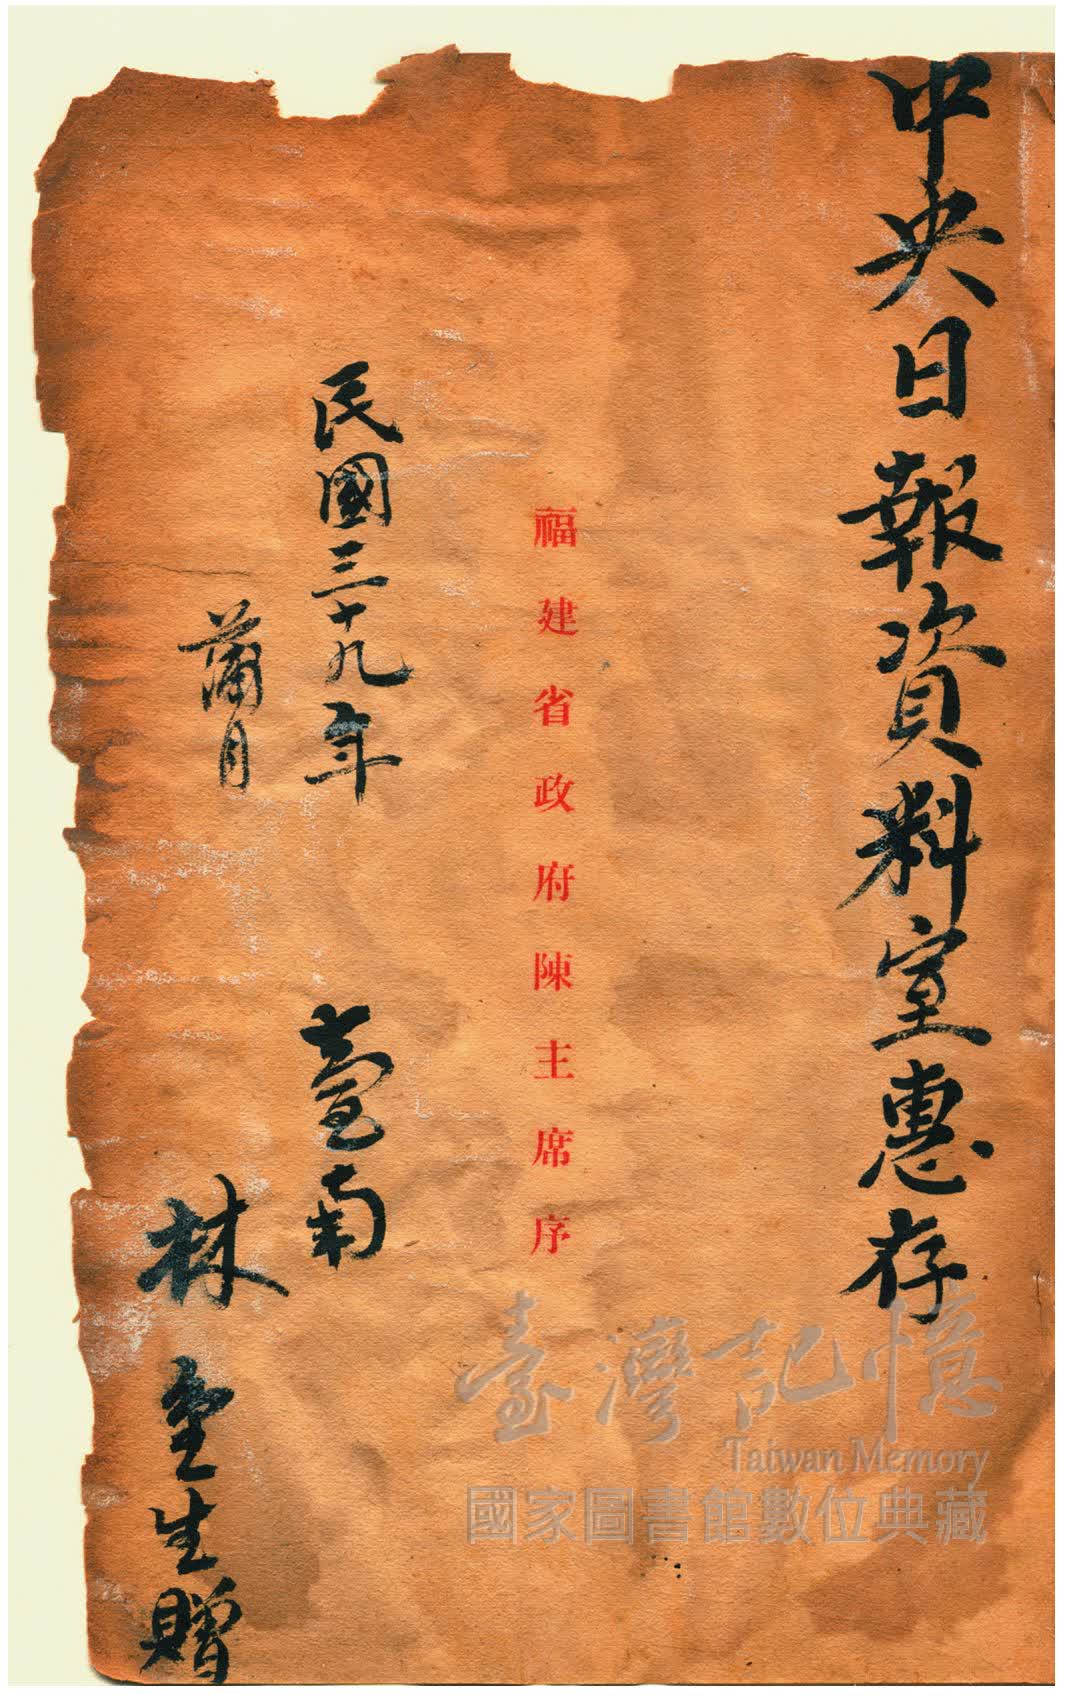 中央日報資料室惠存
福建省政府陳主席序
民國三十九年
蒲月
臺南
林金生贈
臺灣記憶
Taiwan Memory
國家圖書館數位典藏